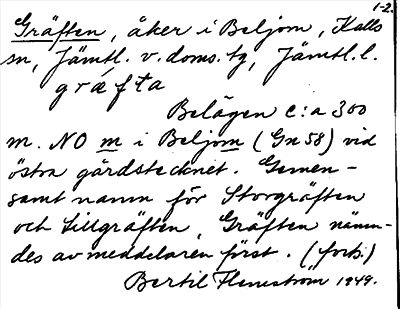 1-2.
Gräften, åker i Beljom, Kalls
sn, Jämtl. v. doms. tg, Jämtl. l.
græfta
Belägen c:a 300
m. NO m i Beljom (Gn 58) vid
östra gårdstecknet. Gemen-
samt namn för Storgräften
och Lillgräften. Gräften nämn-
des av meddelaren först. (forts.)
Bertil Flemström 1949.